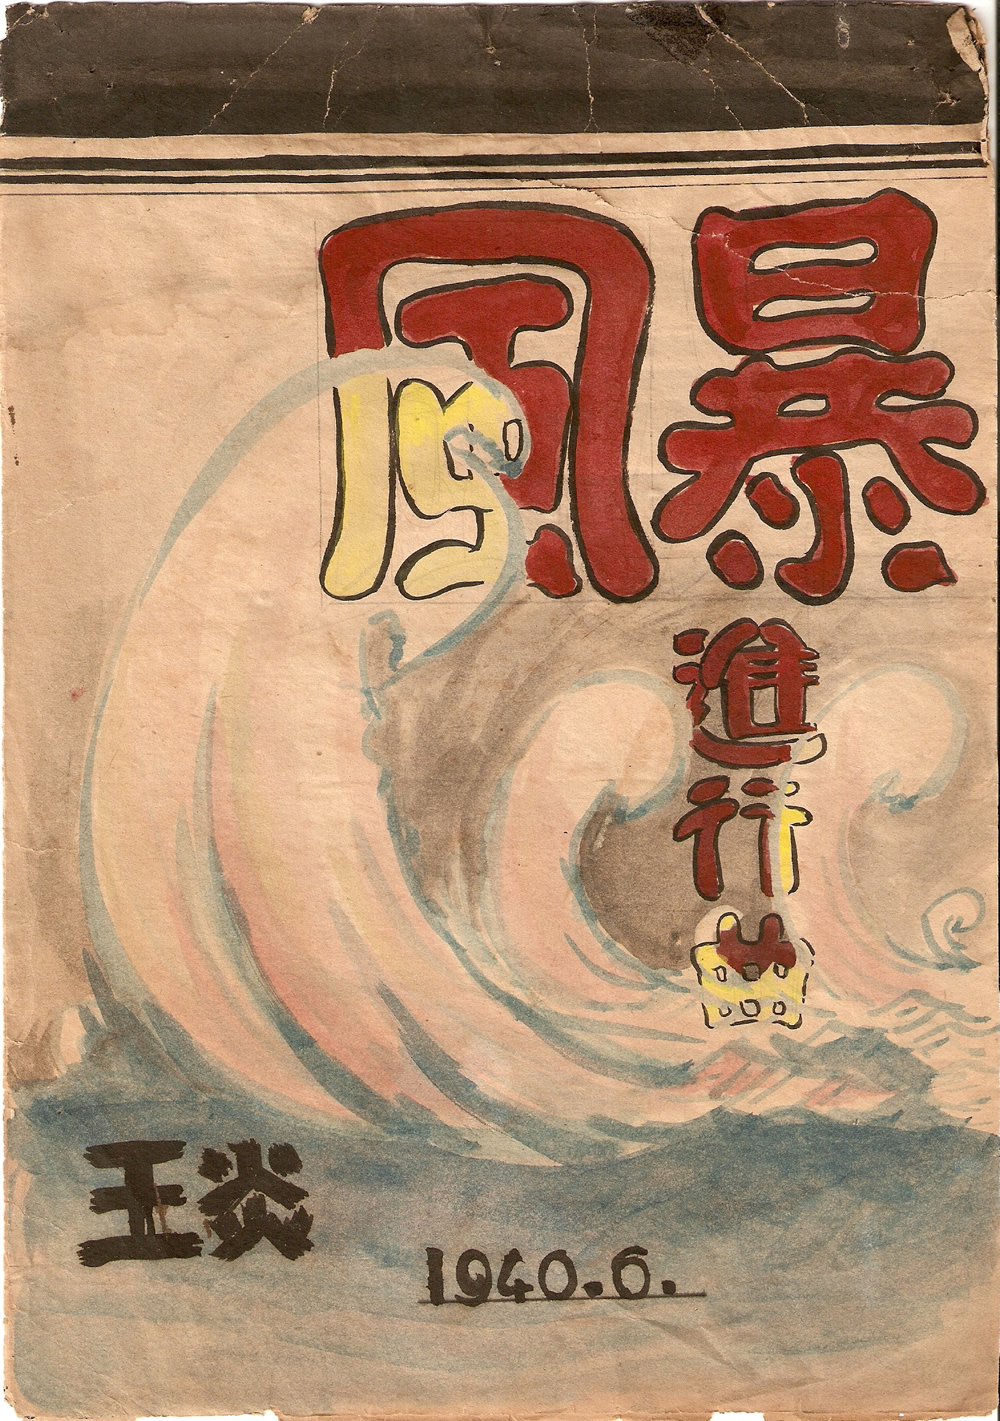 風暴
進行曲
王炎
1940.6.